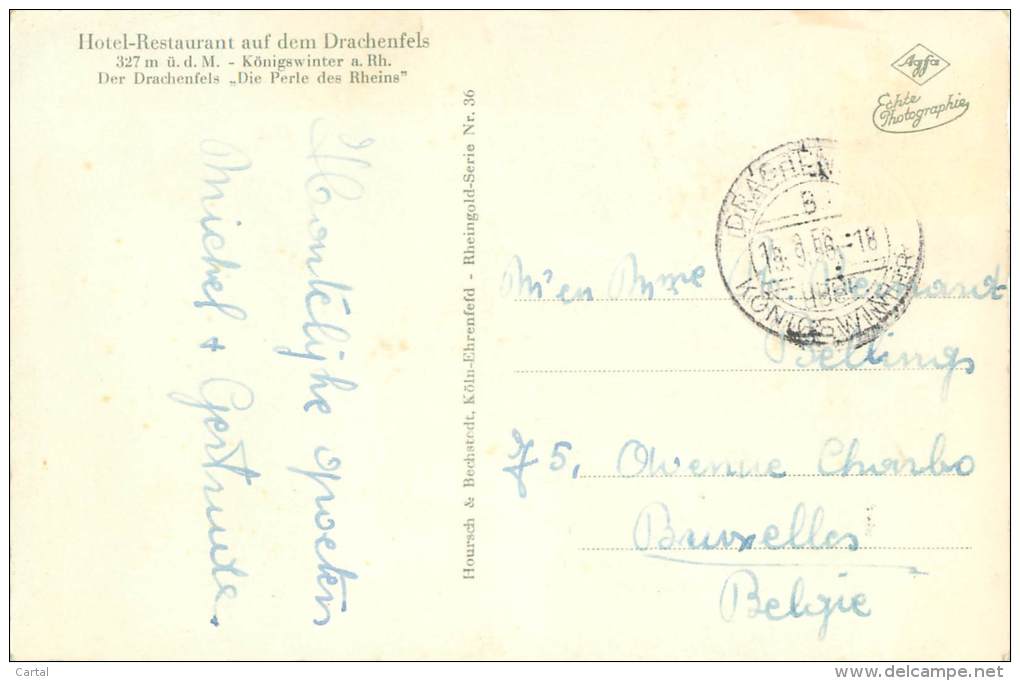 Hotel-Restaurant auf dem Drachenfels
327 m ü. d. M. - Königswinter a. Rh.
Der Drachenfels „Die Perle des Rheins"
Hoursch & Bechstedt, Köln-Ehrenfeld - Rheingold-Serie Nr. 36
Agfa
Echte
Photographie
Hartelijke groeten
Michel + Gertrude.
DRACHEN
-18
KÖNIGSWINTER
M' en Mme
Bellings
75, Avenue Charbo
Bruxelles
Belgie
Cartal
delcampe.net